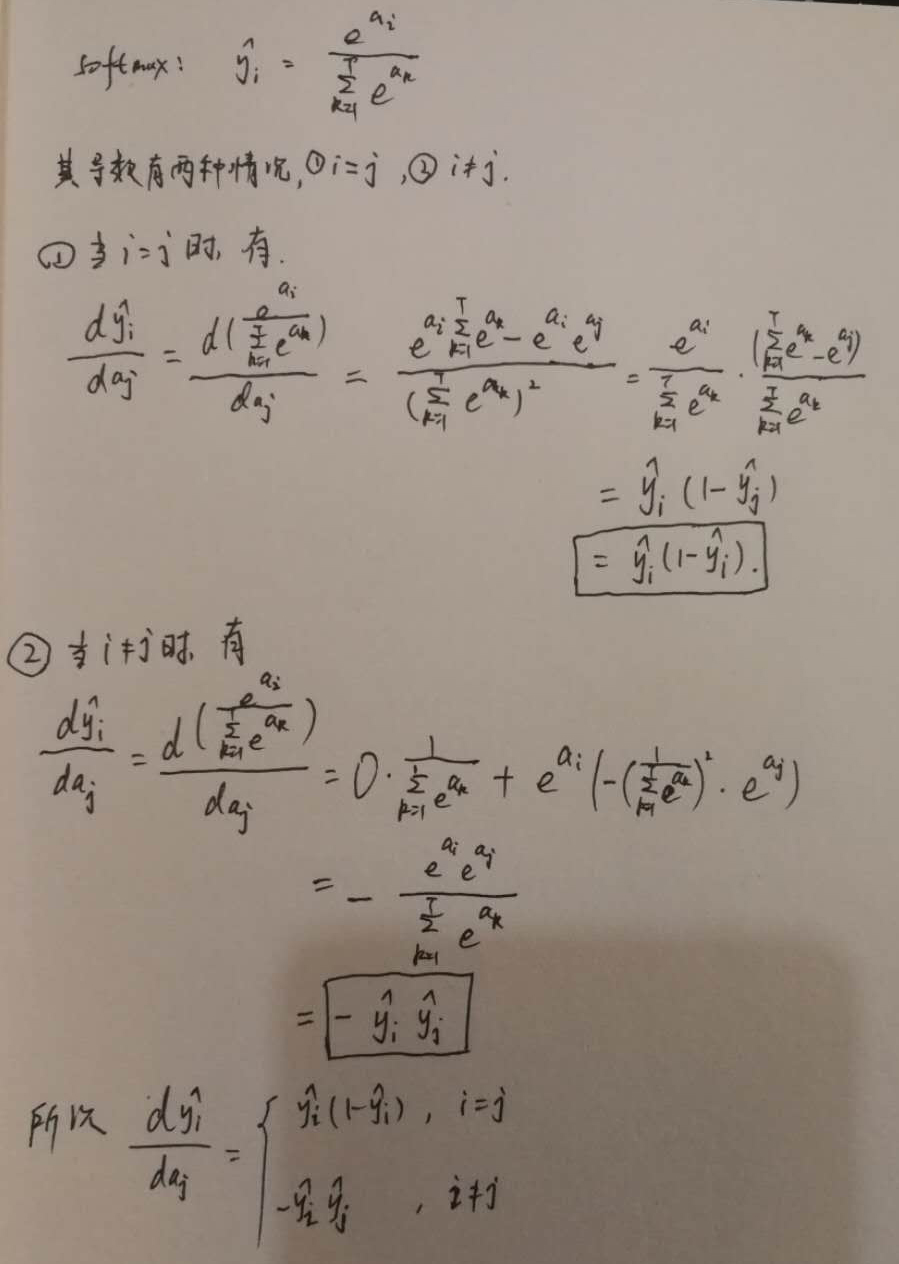 softmax: ŷ_i = e^{a_i} / Σ_{k=1}^{T} e^{a_k}
其导数有两种情况,①i=j,②i≠j.
①当i=j时,有.
dŷ_i/da_j = d(e^{a_i} / Σ_{k=1}^{T} e^{a_k})/da_j = (e^{a_i} Σ_{k=1}^{T} e^{a_k} - e^{a_i} e^{a_j}) / (Σ_{k=1}^{T} e^{a_k})^2 = e^{a_i} / Σ_{k=1}^{T} e^{a_k} · (Σ_{k=1}^{T} e^{a_k} - e^{a_j}) / Σ_{k=1}^{T} e^{a_k}
= ŷ_i (1-ŷ_j)
= ŷ_i (1-ŷ_i).
②当i≠j时,有
dŷ_i/da_j = d(e^{a_i} / Σ_{k=1}^{T} e^{a_k})/da_j = 0 · 1/Σ_{k=1}^{T} e^{a_k} + e^{a_i} (-(1/Σ_{k=1}^{T} e^{a_k})^2 · e^{a_j})
= - e^{a_i} e^{a_j} / Σ_{k=1}^{T} e^{a_k}
= - ŷ_i ŷ_j
所以 dŷ_i/da_j = { ŷ_i(1-ŷ_i), i=j
-ŷ_i ŷ_j , i≠j